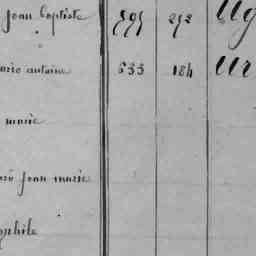 Jean Baptiste 595 292 Ug
antoine 633 184 Ur
marie
Jean marie
ophile